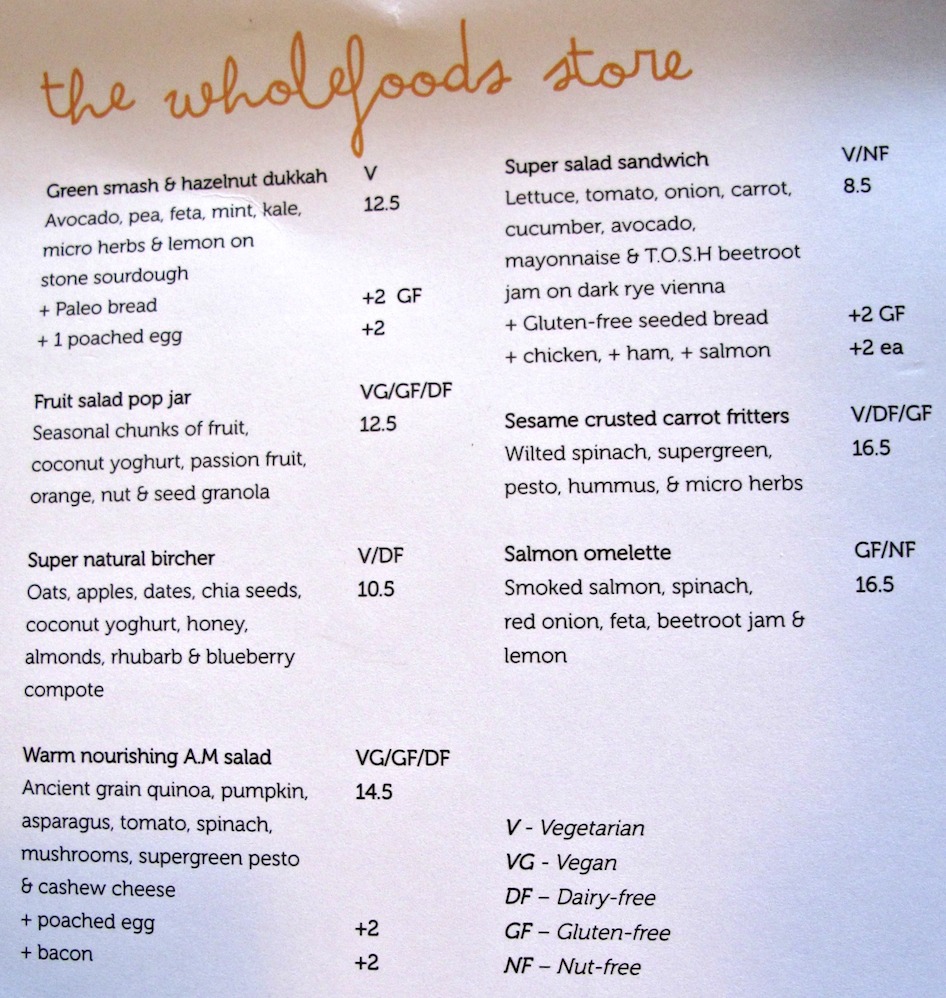 the wholefoods store
Green smash & hazelnut dukkah V
Avocado, pea, feta, mint, kale, 12.5
micro herbs & lemon on
stone sourdough
+ Paleo bread +2 GF
+ 1 poached egg +2
Fruit salad pop jar VG/GF/DF
Seasonal chunks of fruit, 12.5
coconut yoghurt, passion fruit,
orange, nut & seed granola
Super natural bircher V/DF
Oats, apples, dates, chia seeds, 10.5
coconut yoghurt, honey,
almonds, rhubarb & blueberry
compote
Warm nourishing A.M salad VG/GF/DF
Ancient grain quinoa, pumpkin, 14.5
asparagus, tomato, spinach,
mushrooms, supergreen pesto
& cashew cheese
+ poached egg +2
+ bacon +2
Super salad sandwich V/NF
Lettuce, tomato, onion, carrot, 8.5
cucumber, avocado,
mayonnaise & T.O.S.H beetroot
jam on dark rye vienna
+ Gluten-free seeded bread +2 GF
+ chicken, + ham, + salmon +2 ea
Sesame crusted carrot fritters V/DF/GF
Wilted spinach, supergreen, 16.5
pesto, hummus, & micro herbs
Salmon omelette GF/NF
Smoked salmon, spinach, 16.5
red onion, feta, beetroot jam &
lemon
V - Vegetarian
VG - Vegan
DF – Dairy-free
GF – Gluten-free
NF – Nut-free